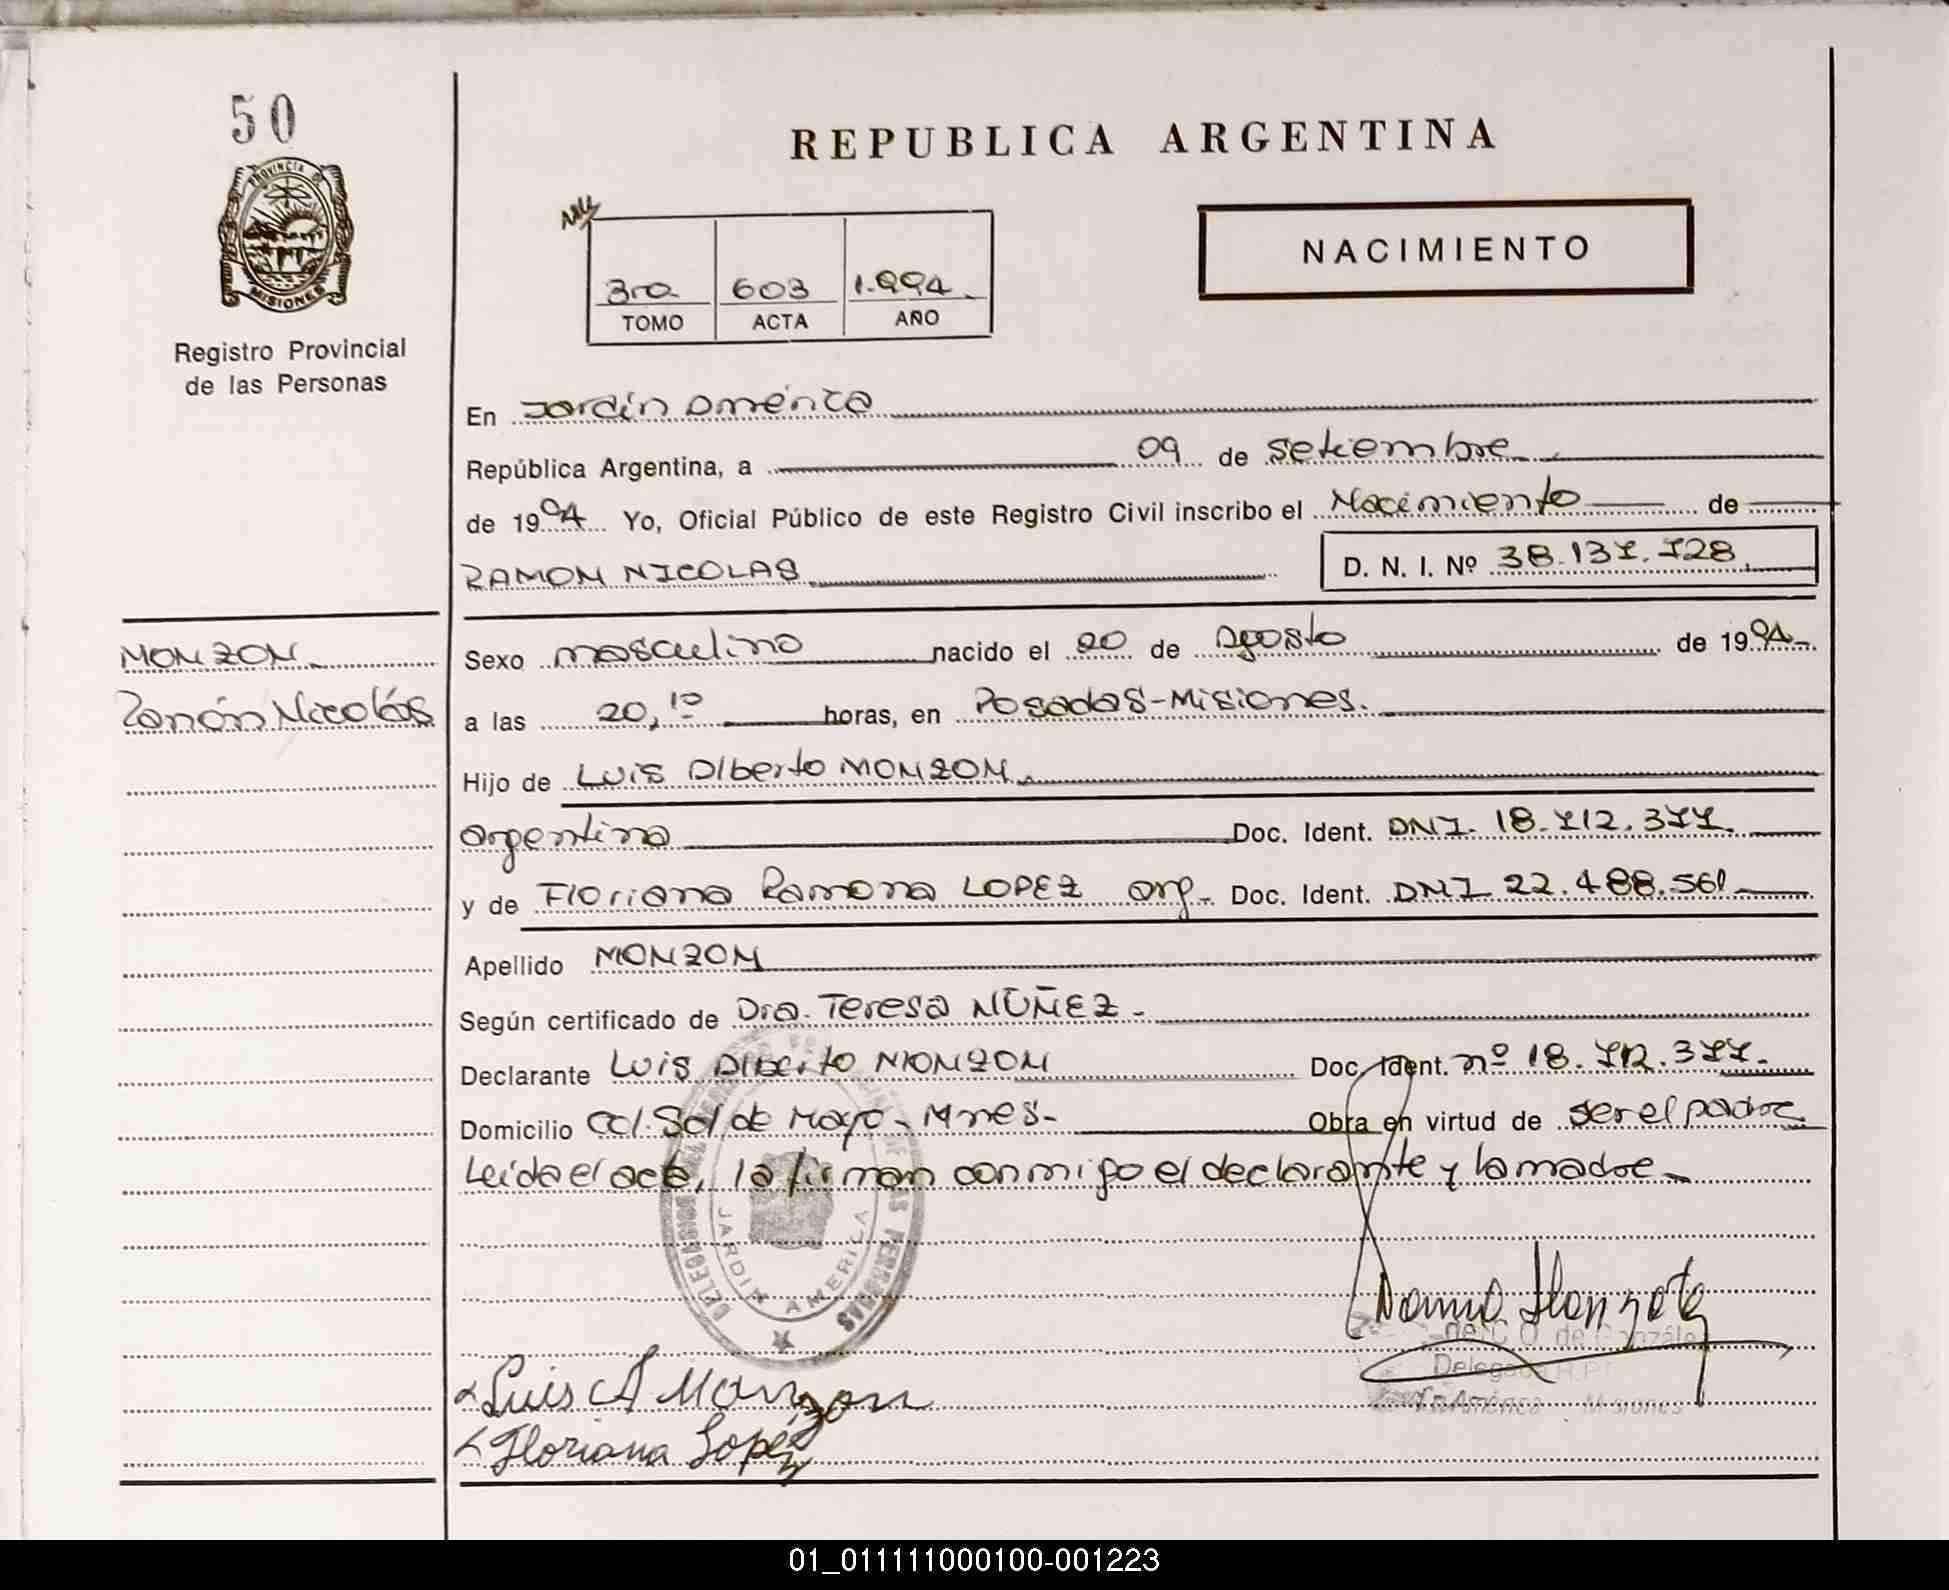 50
PROVINCIA DE
MISIONES
Registro Provincial
de las Personas
REPUBLICA ARGENTINA
NACIMIENTO
3ro 603 1.994
TOMO ACTA AÑO
En Jardín América
República Argentina, a 09 de setiembre
de 1994 Yo, Oficial Público de este Registro Civil inscribo el Nacimiento de
RAMON NICOLAS D. N. I. Nº 38.137.728
MONZON
Ramón Nicolás
Sexo masculino nacido el 20 de Agosto de 1994
a las 20,10 horas, en Posadas-Misiones.
Hijo de LUIS Alberto MONZON
argentina Doc. Ident. DNI. 18.712.377.
y de Floriana Ramona LOPEZ arg. Doc. Ident. DNI 22.488.561
Apellido MONZON
Según certificado de Dra. Teresa NÚÑEZ -
Declarante Luis Alberto MONZON Doc. Ident. nº 18.712.377.
Domicilio Col. Sol de Mayo - Mnes- Obra en virtud de ser el padre
Leída el acta, la firman conmigo el declarante y la madre
JARDIN AMERICA
DELEGACION DE LAS PERSONAS
de González
Delegada
América Misiones
Luis A Monzon
Floriana Lopéz
01_011111000100-001223